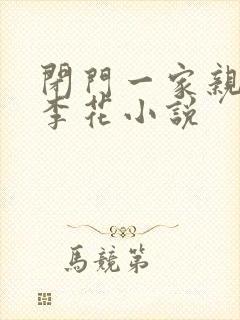 閉門一家親
李花小說
馬競第